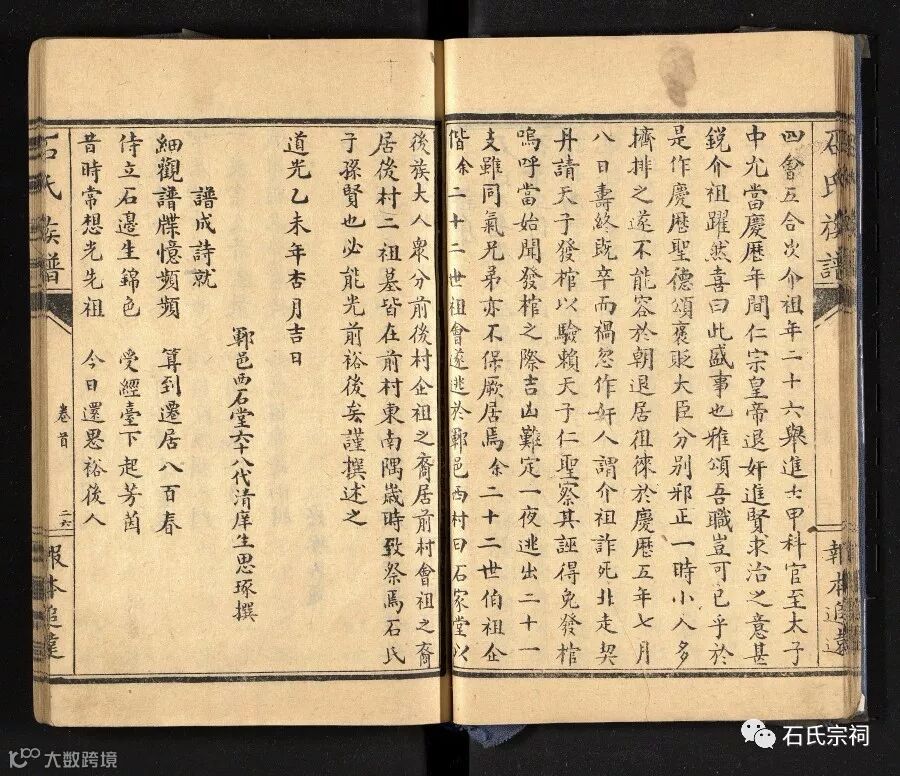 石氏族譜
四會五合次介祖年二十六舉進士甲科官至太子
中允當慶曆年間仁宗皇帝退奸進賢求治之意甚
銳介祖躍然喜曰此盛事也雅頌吾職豈可已乎於
是作慶曆聖德頌褒貶大臣分別邪正一時小人多
擠排之遂不能容於朝退居徂徠於慶曆五年七月
八日壽終既卒而禍忽作奸人謂介祖詐死北走契
丹請天子發棺以驗賴天子仁聖察其誣得免發棺
嗚呼當始聞發棺之際吉山難定一夜逃出二十一
支雖同氣兄弟亦不保厥居焉余二十二世伯祖企
偕余二十二世祖會遂逃於鄆邑西村曰石家堂以
報本追遠
後族大人衆分前後村企祖之裔居前村會祖之裔
居後村二祖墓皆在前村東南隅歲時致祭焉石氏
子孫賢也必能光前裕後矣謹撰述之
道光乙未年杏月吉日
鄆邑西石堂六十八代清庠生思琢撰
譜成詩就
細觀譜牒憶頻頻 算到遷居八百春
侍立石邊生錦色 受經臺下起芳茵
昔時常想光先祖 今日還思裕後人
石氏族譜
卷首
二六
報本追遠
石氏宗祠
大数跨境